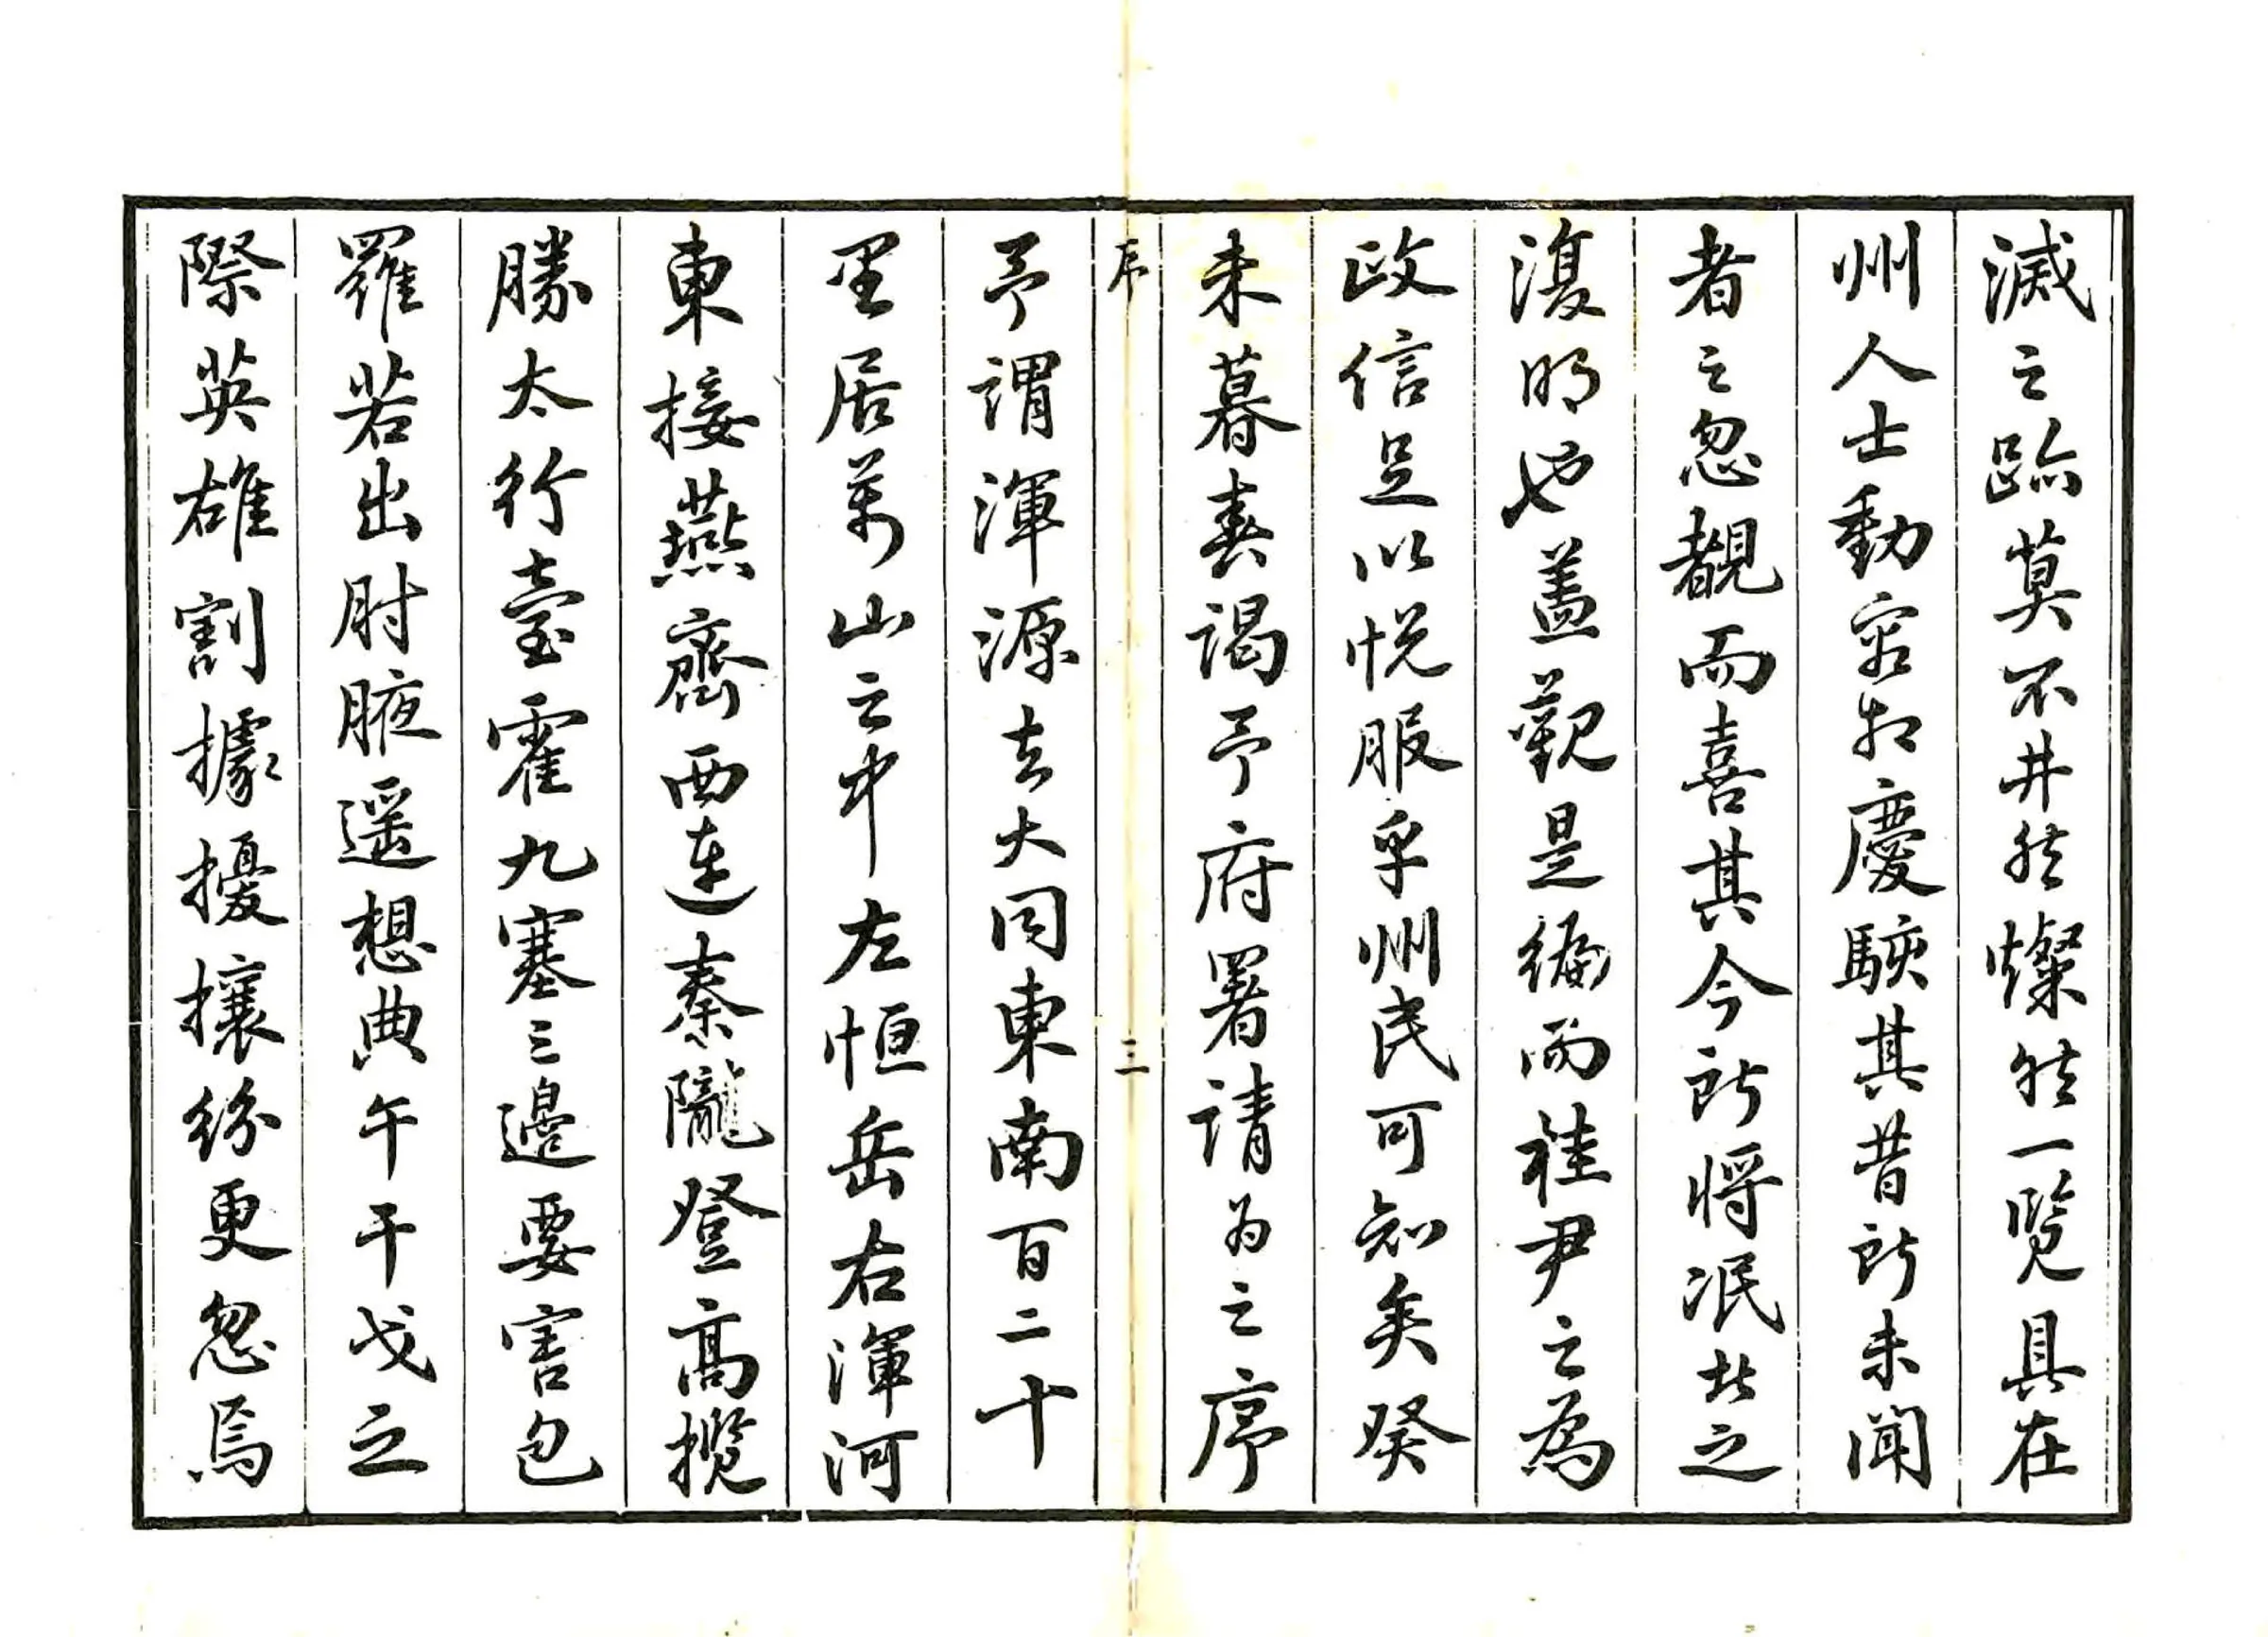 滅之跡莫不井然燦然一覽具在
州人士動容相慶駭其昔所未聞
者之忽覩而喜其今所將泯者之
復明也蓋觀是編而桂尹之為
政信足以悅服乎州民可知矣癸
未暮春謁予府署請為之序
序
三
予謂渾源去大同東南百二十
里居萬山之中左恒岳右渾河
東接燕齊西連秦隴登高攬
勝太行臺霍九塞三邊要害包
羅若出肘腋遥想典午干戈之
際英雄割據擾攘紛更忽焉